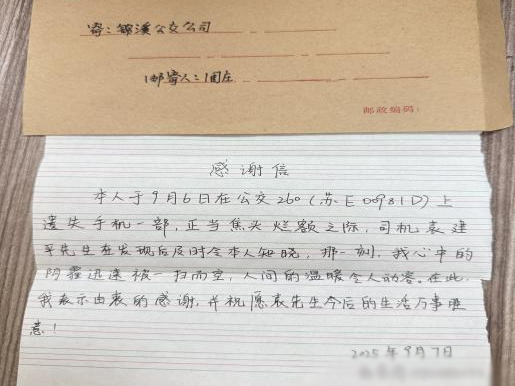 寄：锦溪公交公司
邮寄人：周庄
邮政编码：
感谢信
本人于9月6日在公交260（苏E00981D）上
遗失手机一部，正当焦头烂额之际，司机袁建
平先生在发现后及时令本人知晓，那一刻，我心中的
阴霾迅速被一扫而空，人间的温暖令人动容。在此，
我表示由衷的感谢，并祝愿袁先生今后的生活万事胜
意！
2025年9月7日